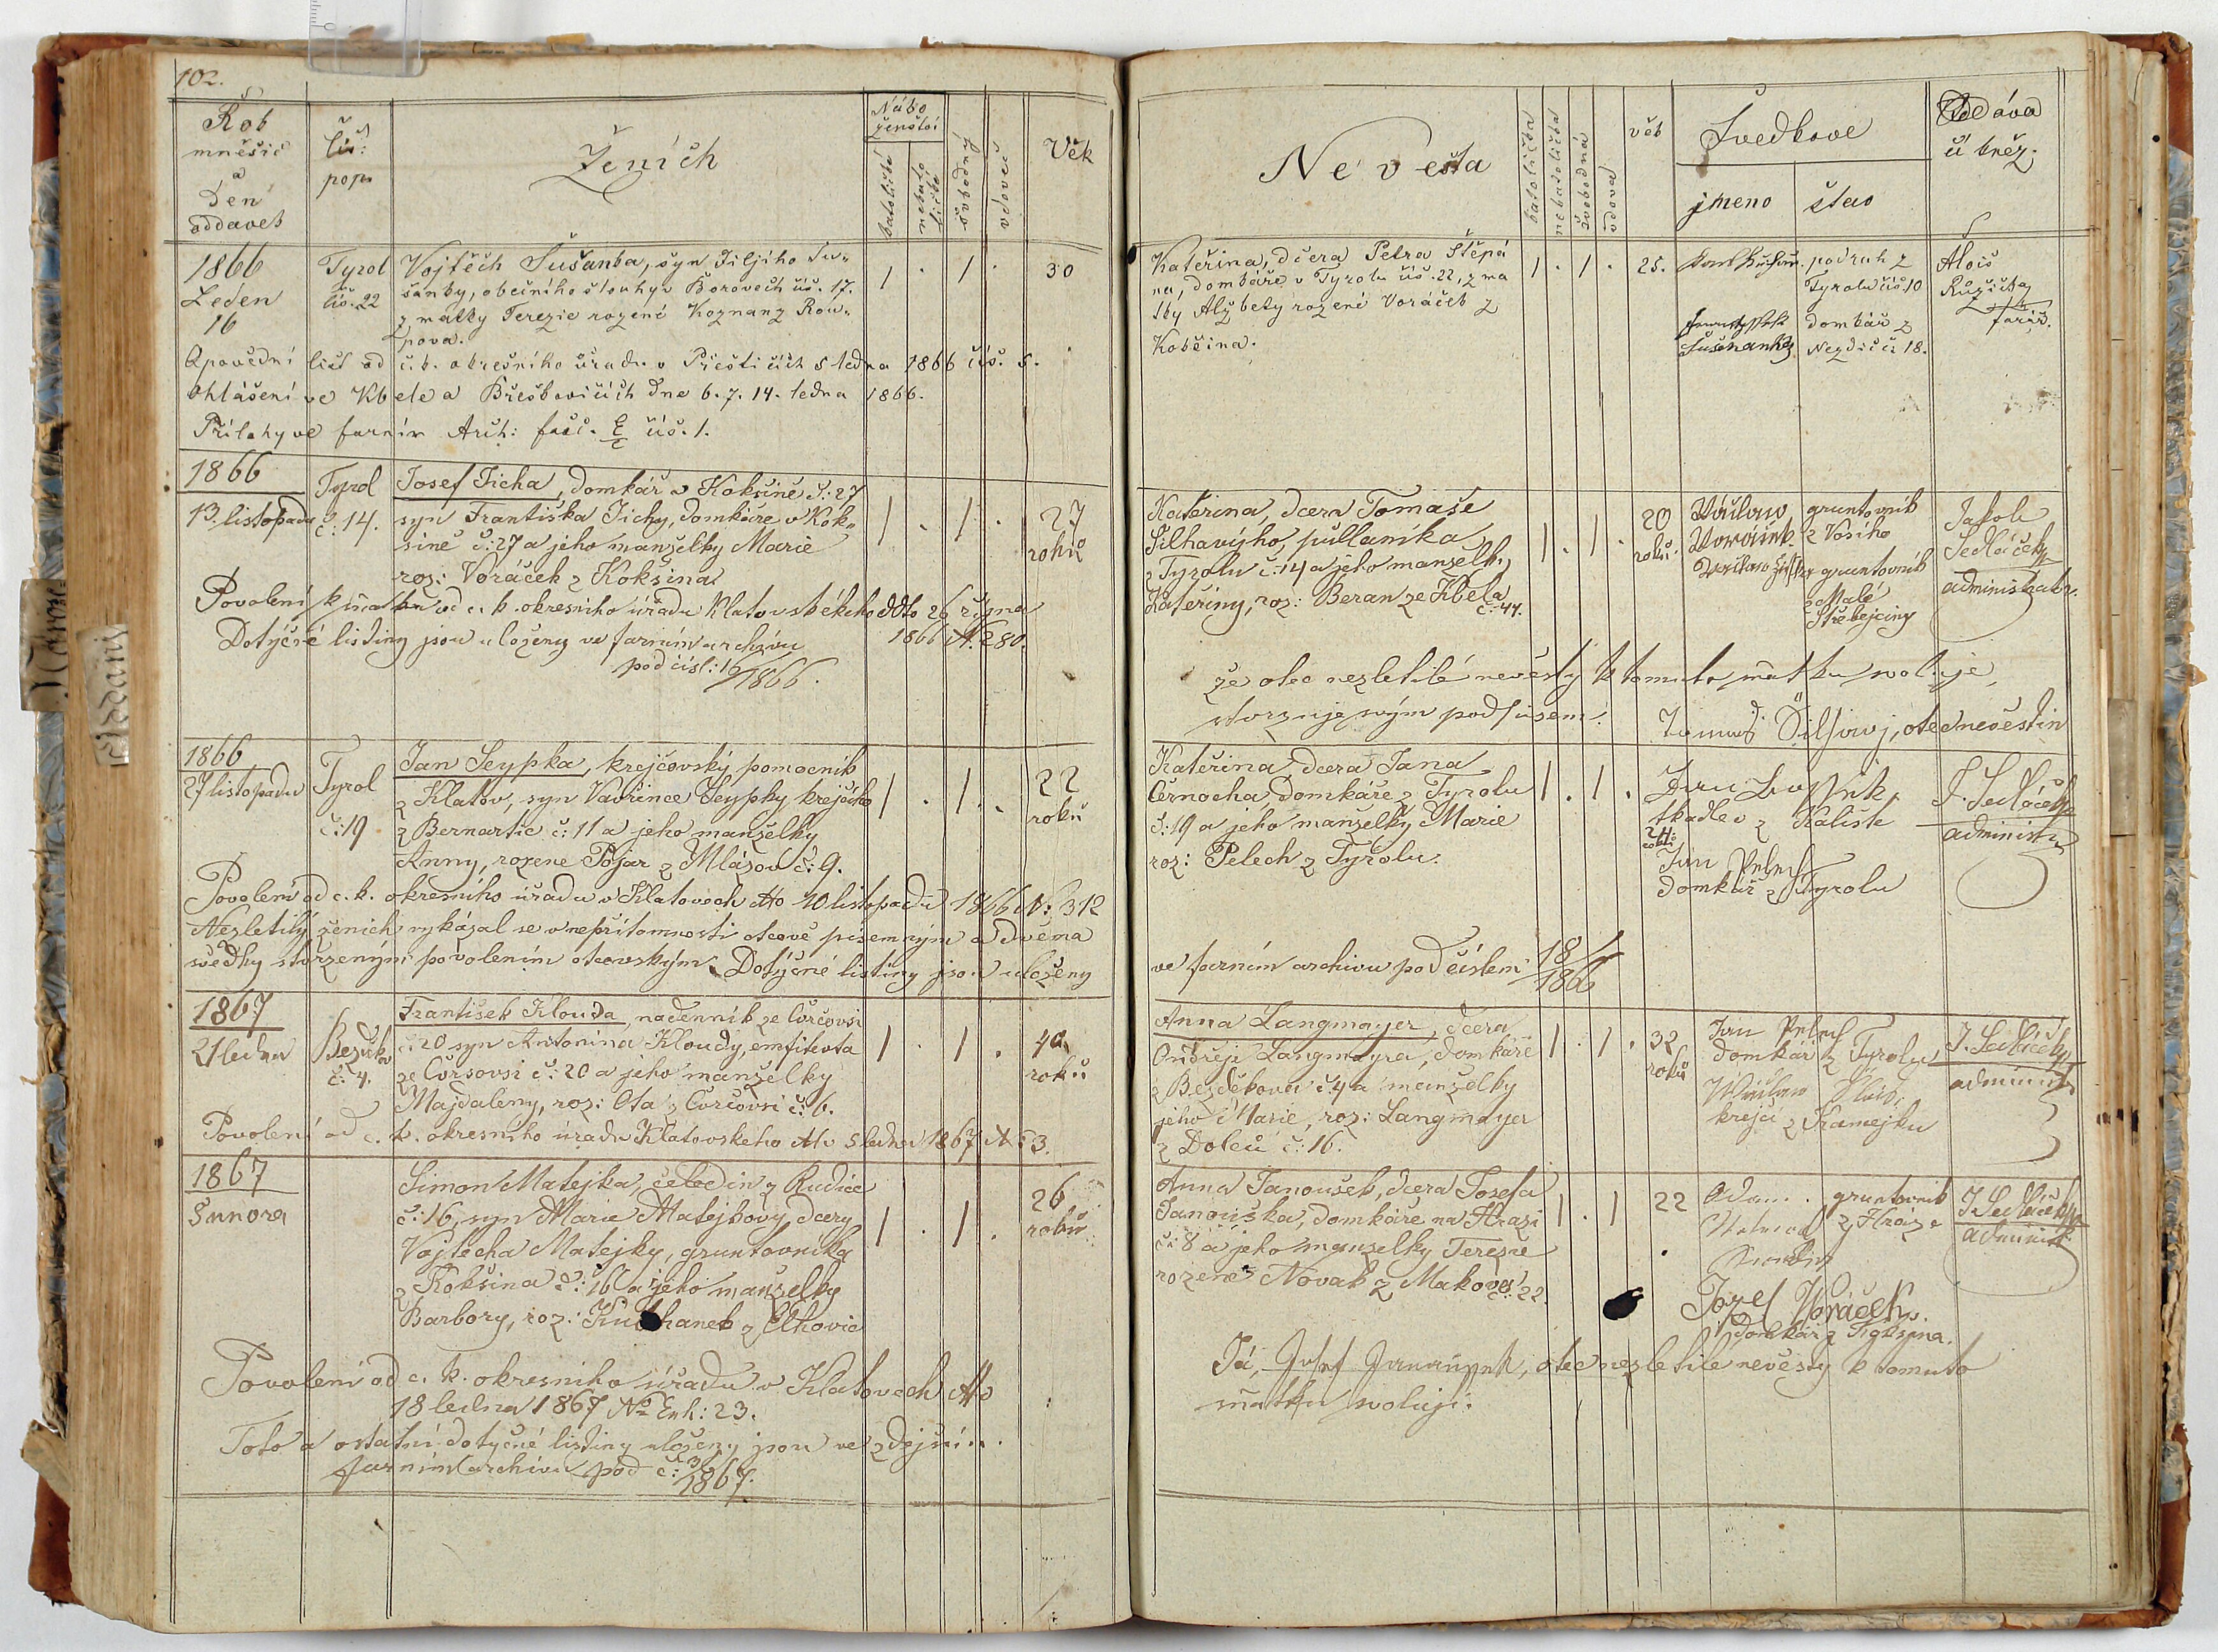 102.
Rok
mněsíc
a
Den
oddavek
čís:
pop.
Ženich
Nábo
ženství
katolické
nekato
lické
svobodný
vdovec
Věk
1866
Leden
16
Tyrol
čís. 22
Vojtěch Sušanka, syn Jiljího Su„
šanky, obecního slouhy v Borovech čís. 17.
z matky Terezie rozené Koznanz Rou„
pova.
1 . 1 .
30
Opovědní list od c. k. okresního úřadu v Přešticích 5 ledna 1866 čís. 5.
Ohlášení ve Kbele a Břeskovicích dne 6. 7. 14. ledna 1866.
Přílohy ve farním Arch: fasc. čís. 1.
1866
13. listopadu
Tyrol
č. 14.
Josef Jicha, domkář v Kokšíně č: 27
syn Františka Jichy, domkáře v Kok„
šíně č: 27 a jeho manželky Marie
roz: Voráček z Kokšína
1 . 1 .
27
roků
Povolení k sňatku od c. k. okresního úřadu Klatovského ddto 26 října
1866 N. 280.
Dotýčné listiny jsou uloženy ve farním archivu
pod čísl: 16/1866.
1866
27 listopadu
Tyrol
č: 19
Jan Seypka, krejčovský pomocník
z Klatov, syn Vavřince Seypky krejčího
z Bernartic č: 11 a jeho manželky
Anny, rozené Pojar z Mlázov č: 9.
1 . 1 .
22
roků
Povolení od c. k. okresního úřadu v Klatovech dto 10 listopadu 1866 N: 312
Nezletilý ženich vykázal se v nepřítomnosti otcově písemným a dvěma
svědky stvrzeným povolením otcovským. Dotýčné listiny jsou uloženy
1867
21 ledna
Bezděkov
č: 4.
František Klouda, nádenník ze Črčovsi
č: 20 syn Antonína Kloudy, emfitevta
ze Črsovsi č: 20 a jeho manželky
Majdaleny, roz: Ota z Črčovsi č: 6.
1 . 1 .
40
roků
Povolení od c. k. okresního úřadu Klatovského dto 5 ledna 1867 N 53.
1867
Února
Simon Matejka, čeledín z Rudice
č: 16, syn Marie Matejkovy, dcery
Vojtěcha Matejky, gruntovníka
z Kokšína č: 16 a jeho manželky
Barbory, roz: z Elhovic
1 . 1 .
26
roků
Povolení od c. k. okresního úřadu v Klatovech dto
18 ledna 1867 No Exh: 23.
Toto a ostatní dotyčné listiny uloženy jsou ve zdejším
farním archivu pod č: 3/1867.
Nevěsta
katolička
nekatolička
svobodná
vdova
věk
Svedkove
jmeno
stav
Oddáva
jící kněz.
Kateřina, dcera Petra Štěpá
na, domkáře v Tyrolu čís. 22, z ma
tky Alžbety rozené Voráček z
Kokšína.
1 . 1 .
25.
podruh z
Tyrolu čís. 10
domkář z
Nezdic č: 18.
Alois
Růžička
farář.
Kateřina, dcera Tomaše
Šilhavýho, půllaníka
z Tyrolu č: 14 a jeho manželky
Kateřiny, roz: Beran ze Kbela
č: 44.
1 . 1 .
20
roků.
Václaw
Woráček
gruntovník
z Vosího
gruntovník
z Malé
Střebejčiny
Jakob
Sedláček
administrator.
že otec nezletilé nevěsty k tomuto sňatku svoluje,
stvrzuje svým podpisem:
Tomáš Šilhavj, otec nevěstin
Kateřina, dcera Jana
Černocha, domkáře z Tyrolu
č: 19 a jeho manželky Marie
roz: Pelech z Tyrolu.
1 . 1 .
24
roků
Jan
tkadlec z Kaliště
Jan Pelech
domkář z Tyrolu
J. Sedláček
administr
ve farním archivu pod číslem 18/1866
Anna Langmayer, dcera
Ondřeje Langmayra, domkáře
z Bezděkova č: 4 a manželky
jeho Marie, roz: Langmayer
z Dolců č: 16.
1 . 1 .
32
roků
Jan Pelech
domkář z Tyrolu
Wáclaw
krejčí z Kamejku
J. Sedláček
administr
Anna Janoušek, dcera Josefa
Janouška, domkáře na Hrázi
č: 8 a jeho manželky Terezie
rozené Novák z Makova č: 22.
1 . 1
22
Adam
gruntovník
z Hráze
Jozef Woráček
domkář z
J. Sedláček
administ.
Já, Josef Janauschek, otec nezletilé nevěsty k tomuto
sňatku svoluji.